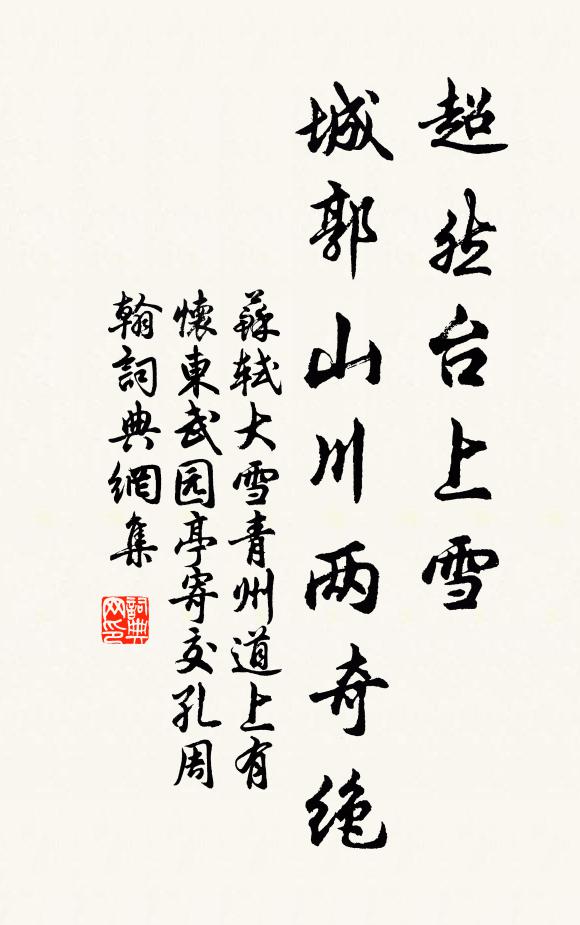 超然台上雪
城郭山川两奇绝
蘇軾大雪青州道上有
懷東武园亭寄交孔周
翰詞典網集
詞典
网印